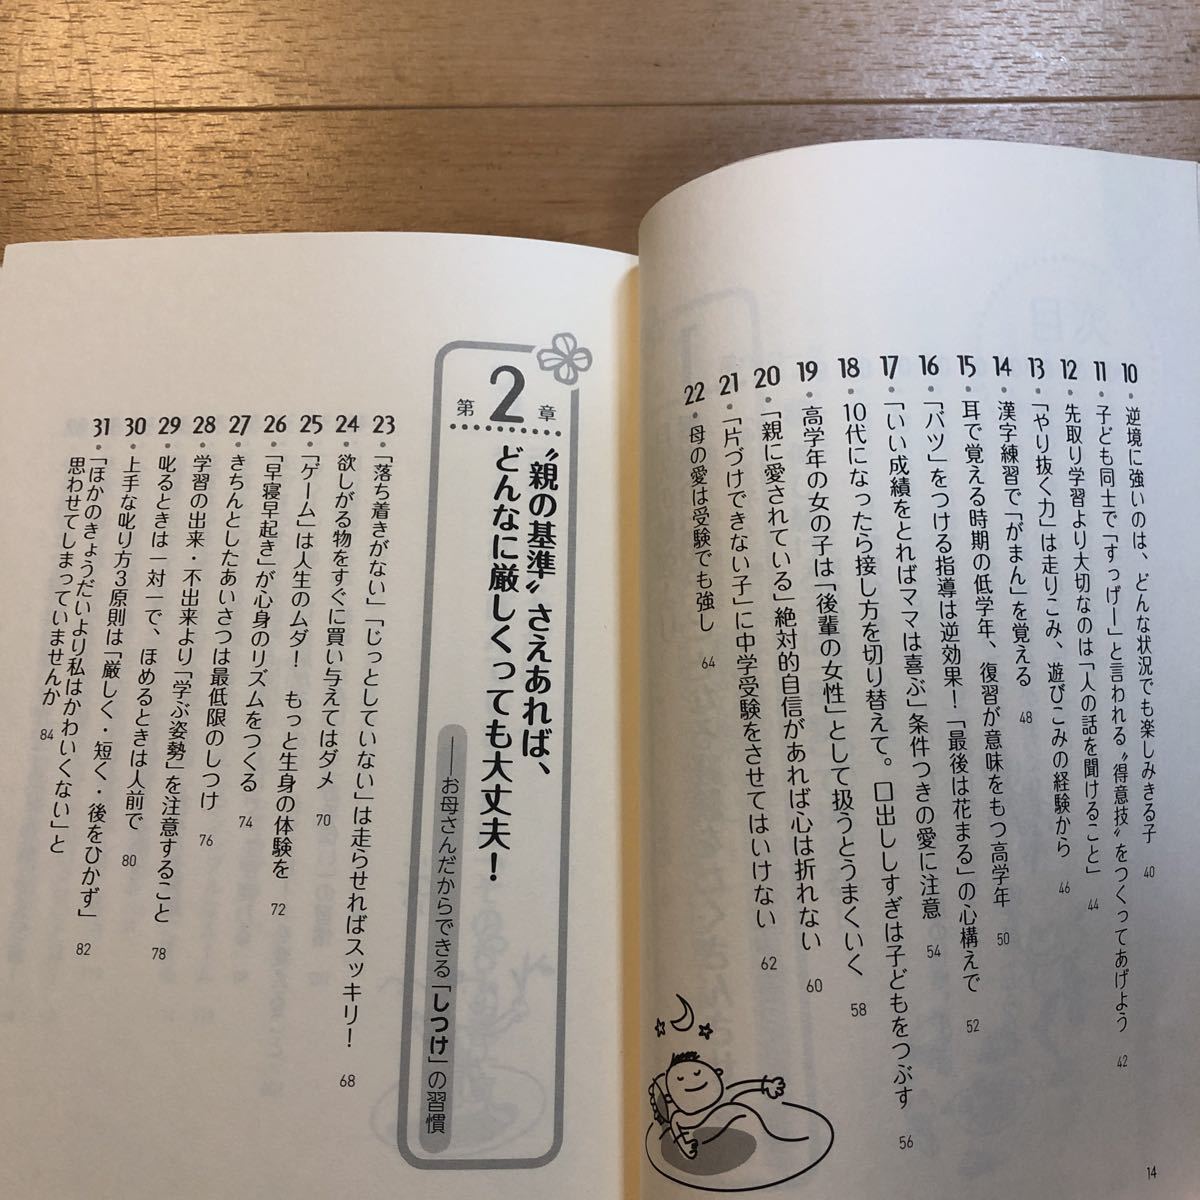 10・逆境に強いのは、どんな状況でも楽しみきる子 40
11・子ども同士で「すっげー」と言われる〝得意技〟をつくってあげよう 42
12・先取り学習より大切なのは「人の話を聞けること」 44
13・「やり抜く力」は走りこみ、遊びこみの経験から 46
14・漢字練習で「がまん」を覚える 48
15・耳で覚える時期の低学年、復習が意味をもつ高学年 50
16・「バツ」をつける指導は逆効果！「最後は花まる」の心構えで 52
17・「いい成績をとればママは喜ぶ」条件つきの愛に注意 54
18・10代になったら接し方を切り替えて。口出ししすぎは子どもをつぶす 56
19・高学年の女の子は「後輩の女性」として扱うとうまくいく 58
20・「親に愛されている」絶対的自信があれば心は折れない 60
21・「片づけできない子」に中学受験をさせてはいけない 62
22・母の愛は受験でも強し 64
14
第2章
〝親の基準〟さえあれば、
どんなに厳しくっても大丈夫！
──お母さんだからできる「しつけ」の習慣
23・「落ち着きがない」「じっとしていない」は走らせればスッキリ！ 68
24・欲しがる物をすぐに買い与えてはダメ 70
25・「ゲーム」は人生のムダ！ もっと生身の体験を 72
26・「早寝早起き」が心身のリズムをつくる 74
27・きちんとしたあいさつは最低限のしつけ 76
28・学習の出来・不出来より「学ぶ姿勢」を注意すること 78
29・叱るときは一対一で、ほめるときは人前で 80
30・上手な叱り方3原則は「厳しく・短く・後をひかず」 82
31・「ほかのきょうだいより私はかわいくない」と
思わせてしまっていませんか 84